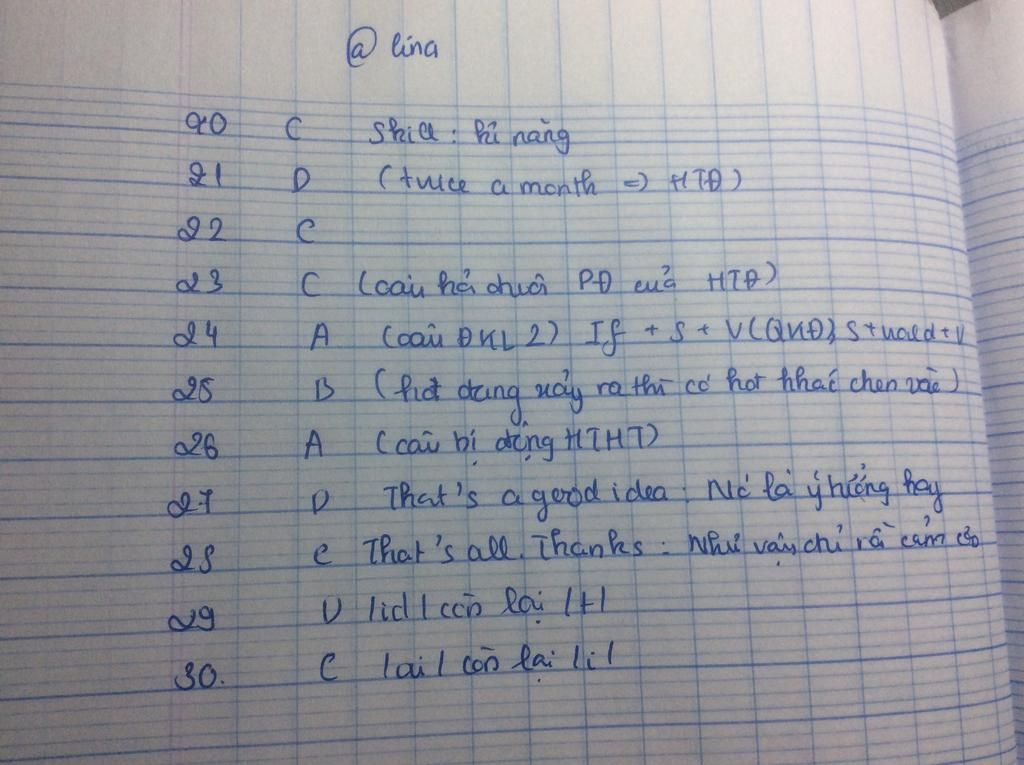 @ lina
20 C Skill : kĩ năng
21 D (twice a month => HTĐ)
22 C
23 C (câu hỏi đuôi PĐ của HTĐ)
24 A (câu ĐKL 2) If + S + V(QKĐ), S + would + V
25 B (hđ đang xảy ra thì có hđ khác chen vào)
26 A (câu bị động HTHT)
27 D That's a good idea : Nó là ý tưởng hay
28 C That's all. Thanks : Như vậy thôi cảm ơn
29 D /id/ còn lại /t/
30. C /ai/ còn lại /i/